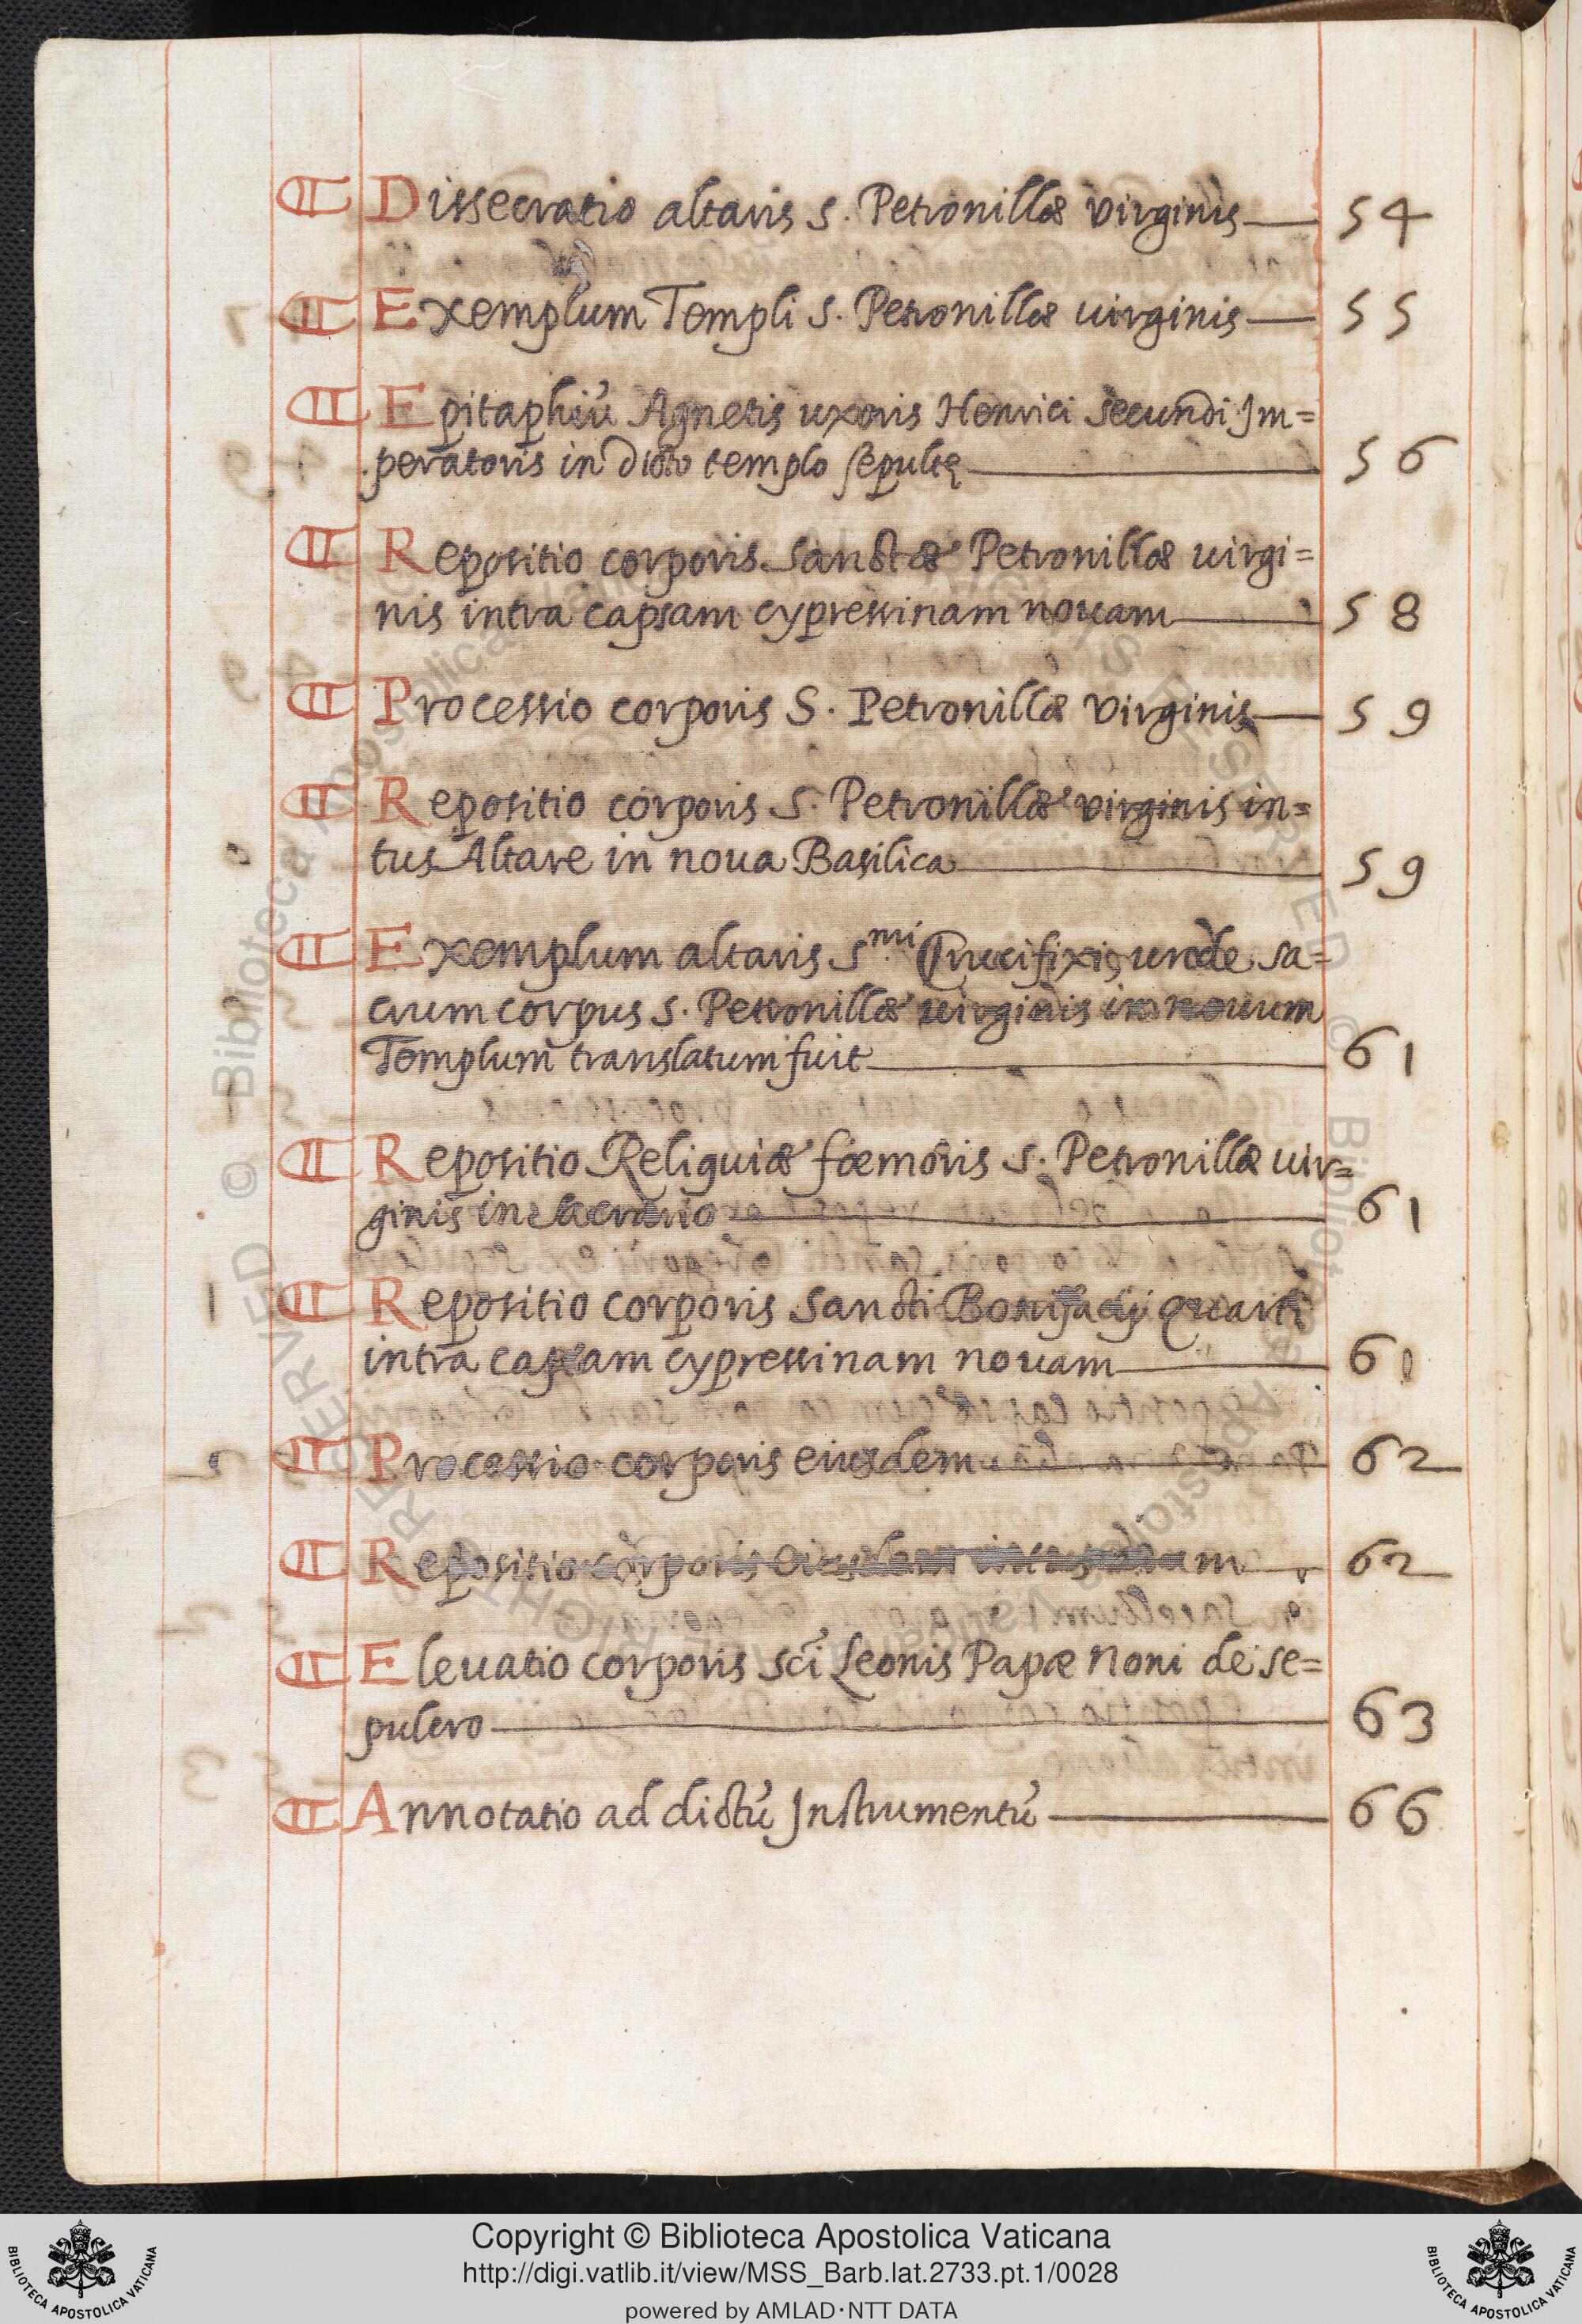 ¶ Dissecratio altaris s. Petronillæ virginis — 54
¶ Exemplum Templi s. Petronillæ uirginis — 55
¶ Epitaphiũ Agnetis uxoris Henrici secundi Im=
peratoris in dicto templo sepultę — 56
¶ Repositio corporis Sanctæ Petronillæ uirgi=
nis intra capsam cypressinam nouam — 58
¶ Processio corporis S. Petronillæ virginis — 59
¶ Repositio corporis S. Petronillæ virginis in=
tus Altare in noua Basilica — 59
¶ Exemplum altaris s.mi Crucifixi, unde sa=
crum corpus s. Petronillæ uirginis in nouum
Templum translatum fuit — 61
¶ Repositio Reliquiæ fœmoris s. Petronillæ uir=
ginis in sacrario — 61
¶ Repositio corporis Sancti Bonifacij Quarti
intra capsam cypressinam nouam — 61
¶ Processio corporis eiusdem — 62
¶ Repositio corporis eiusdem — 62
¶ Eleuatio corporis sc̃i Leonis Papæ Noni de se=
pulcro — 63
¶ Annotatio ad dictũ Instrumentũ — 66
Copyright © Biblioteca Apostolica Vaticana
http://digi.vatlib.it/view/MSS_Barb.lat.2733.pt.1/0028
powered by AMLAD·NTT DATA
BIBLIOTECA APOSTOLICA VATICANA
BIBLIOTECA APOSTOLICA VATICANA